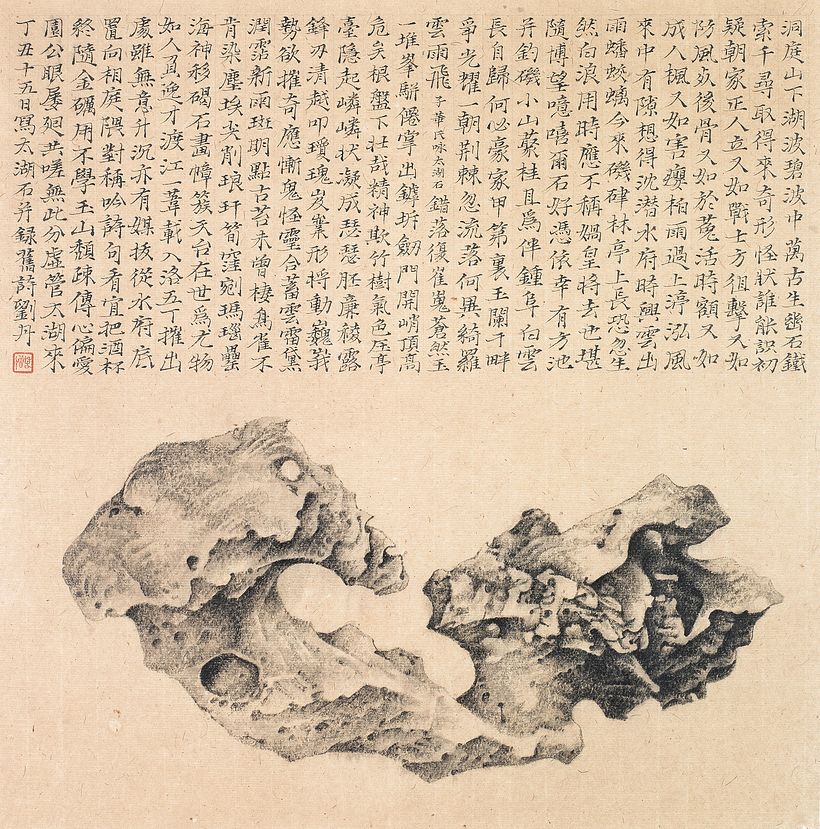 洞庭山下湖波碧波中萬古生幽石鐵
索千尋取得來奇形怪狀誰能識初
疑朝家正人立又如戰士方狙擊又如
防風死後骨又如於菟活時額又如
成人楓又如害癭柏雨過上渟泓風
來中有隙想得沈潛水府時興雲出
雨蟠蛟螭今來磯硉林亭上長恐忽生
然白浪用時應不稱媧皇將去也堪
隨博望噫嘻爾石好憑依幸有方池
并釣磯小山叢桂且爲伴鍾阜白雲
長自歸何必豪家甲第裏玉闌干畔
爭光耀一朝荆棘忽流落何異綺羅
雲雨飛 子華氏咏太湖石 錯落復崔嵬蒼然玉
一堆峯駢僊掌出罅坼劒門開峭頂高
危矣根盤下壯哉精神欺竹樹氣色压亭
臺隱起嶙嶙狀凝成瑟瑟胚廉稜露
鋒刃清越叩瓊瑰岌嶪形將動巍峩
勢欲摧奇應慚鬼怪靈合蓄雲雷黛
潤霑新雨斑明點古苔未曾棲鳥雀不
肯染塵埃尖削琅玕筍窪剜瑪瑙罍
海神移碣石畫幛簇天台在世爲尤物
如人負逸才渡江一葦載入洛五丁摧出
處雖無意升沉亦有媒拔從水府底
置向相庭隈對稱吟詩句看宜把酒杯
終隨金礪用不學玉山頽疎傅心偏愛
園公眼屢廻共嗟無此分虚管太湖來
丁丑十五日寫太湖石并録舊詩劉丹